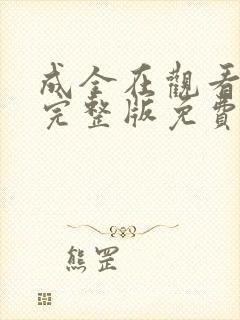 成全在觀看
完整版免費
熊罡